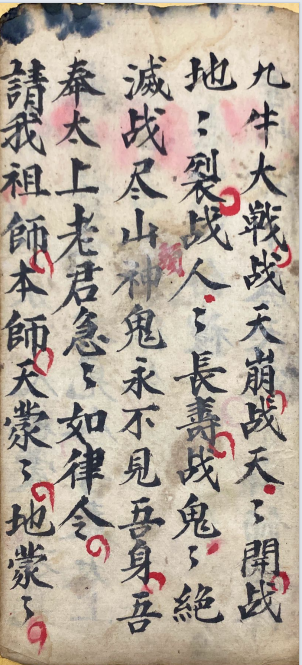 九牛大戦战天崩战天〻開战
地〻裂战人〻長壽战鬼〻絕
滅战尽山神鬼永不見吾身吾
奉太上老君急〻如律令
請我祖師本師天蒙〻地蒙〻